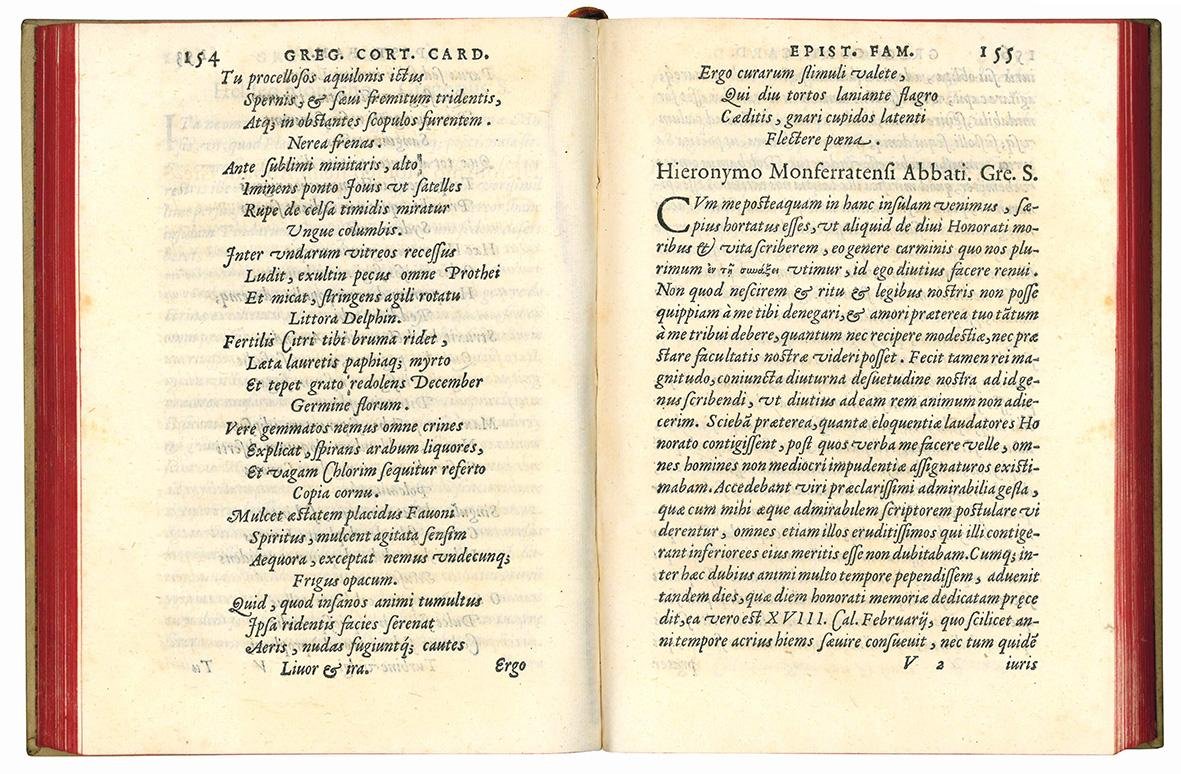 154 GREG. CORT. CARD.
Tu procellosos aquilonis ictus
Spernis, & sæui fremitum tridentis,
Atq; in obstantes scopulos furentem.
Nerea frenas.
Ante sublimi minitaris, alto
Iminens ponto Jouis vt satelles
Rupe de celsa timidis miratur
Vngue columbis.
Jnter vndarum vitreos recessus
Ludit, exultin pecus omne Prothei
Et micat, stringens agili rotatu
Littora Delphin.
Fertilis Citri tibi bruma ridet,
Læta lauretis paphiaq; myrto
Et tepet grato redolens December
Germine florum.
Vere gemmatos nemus omne crines
Explicat, spirans arabum liquores,
Et vagam Chlorim sequitur referto
Copia cornu.
Mulcet æstatem placidus Fauoni
Spiritus, mulcent agitata sensim
Aequora, exceptat nemus vndecunq;
Frigus opacum.
Quid, quod insanos animi tumultus
Jpsa ridentis facies serenat
Aeris, nudas fugiuntq; cautes
Liuor & ira. Ergo
EPIST. FAM. 155
Ergo curarum stimuli valete,
Qui diu tortos laniante flagro
Cæditis, gnari cupidos latenti
Flectere pœna.
Hieronymo Monferratensi Abbati. Gre. S.
CVm me posteaquam in hanc insulam venimus, sæ-
pius hortatus esses, vt aliquid de diui Honorati mo-
ribus & vita scriberem, eo genere carminis quo nos plu-
rimum ἐν τῇ συνάξει vtimur, id ego diutius facere renui.
Non quod nescirem & ritu & legibus nostris non posse
quippiam à me tibi denegari, & amori præterea tuo tãtum
à me tribui debere, quantum nec recipere modestiæ, nec præ
stare facultatis nostræ videri posset. Fecit tamen rei ma-
gnitudo, coniuncta diuturna desuetudine nostra ad id ge-
nus scribendi, vt diutius ad eam rem animum non adie-
cerim. Sciebã præterea, quantæ eloquentiæ laudatores Ho
norato contigissent, post quos verba me facere velle, om-
nes homines non mediocri impudentiæ assignaturos existi-
mabam. Accedebant viri præclarissimi admirabilia gesta,
quæ cum mihi æque admirabilem scriptorem postulare vi
derentur, omnes etiam illos eruditissimos qui illi contige-
rant inferiorees eius meritis esse non dubitabam. Cumq; in-
ter hæc dubius animi multo tempore pependissem, aduenit
tandem dies, quæ diem honorati memoriæ dedicatam pręce
dit, ea vero est XVIII. Cal. Februarÿ, quo scilicet an-
ni tempore acrius hiems sæuire consueuit, nec tum quidẽ
V 2 iuris